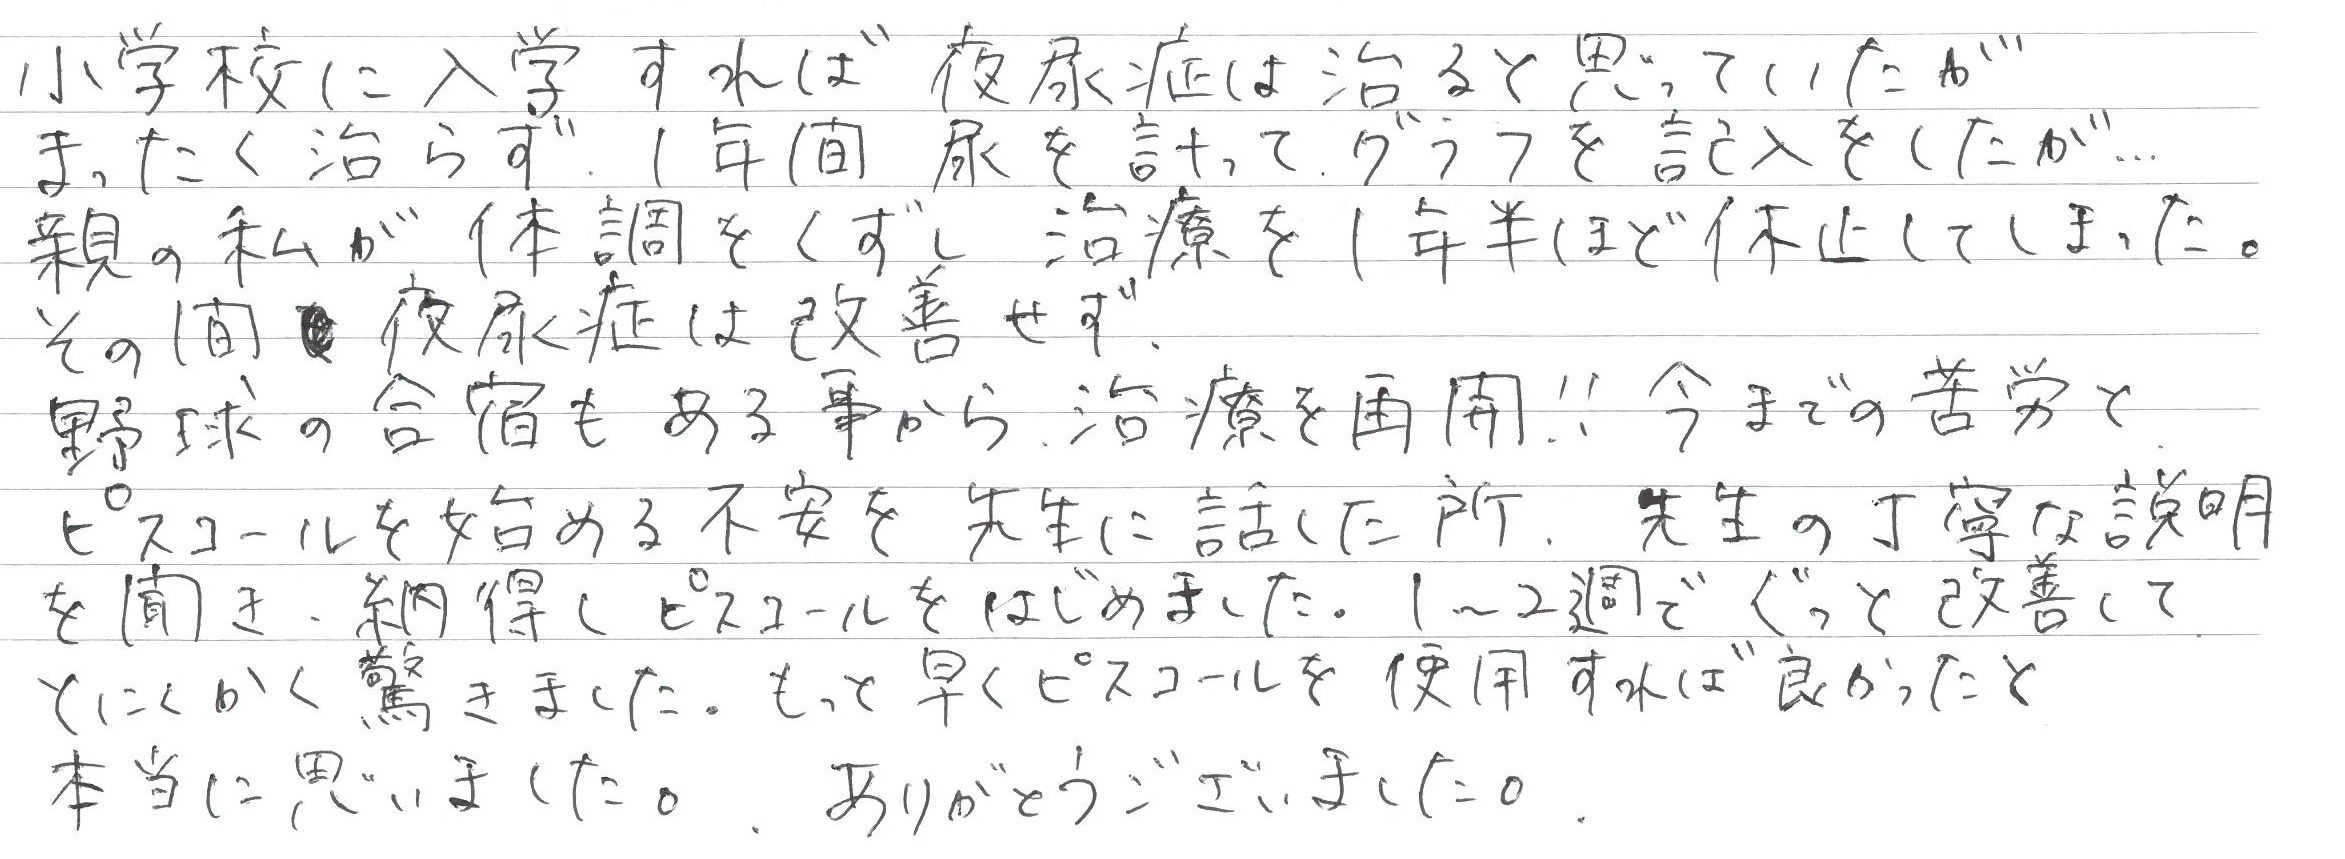 小学校に入学すれば夜尿症は治ると思っていたが
まったく治らず、1年間 尿を計って、グラフを記入をしたが…
親の私が体調をくずし 治療を1年半ほど休止してしまった。
その間 夜尿症は改善せず、
野球の合宿もある事から、治療を再開!! 今までの苦労と、
ピスコールを始める不安を先生に話した所、先生の丁寧な説明
を聞き、納得しピスコールをはじめました。1〜2週でぐっと改善して
とにくかく驚きました。もっと早くピスコールを使用すれば良かったと
本当に思いました。、ありがとうございました。